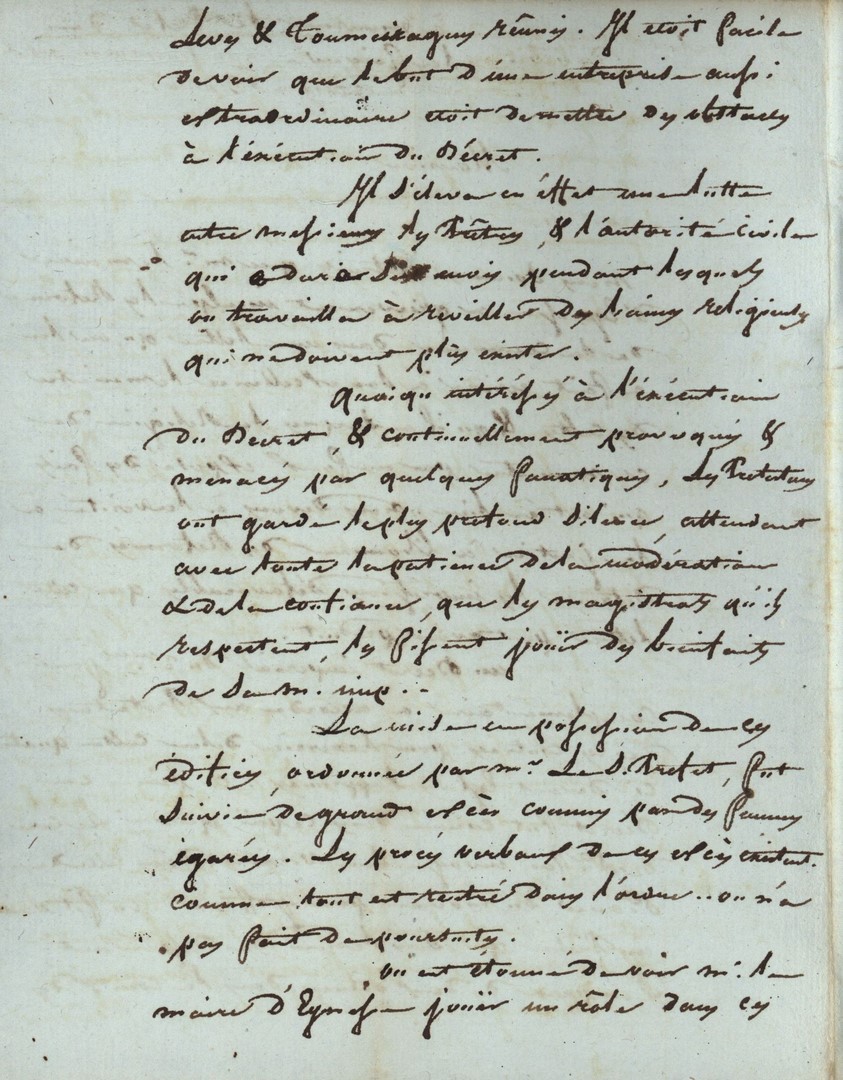 Leves & Tourneiragues réunis. Il etoit facile
de voir que le but d'une entreprise aussi
extraordinaire etoit de mettre des obstacles
à l'éxécution du Décret.
Il s'éleva en éffet une lutte
entre messieurs les Prêtres, & l'autorité civile
qui a duré six mois pendant lesquels
on travailla à reveiller des haines religieuses
qui ne doivent plus exister.
quoiqu'intéréssés à l'éxécution
du Décret, & continuellement provoqués &
menacés par quelques fanatiques, Les Protestans
ont gardé le plus profond silence, attendant
avec toute la patience de la modération
& de la confiance, que les magistrats qu'ils
respectent, les fissent jouïr des bienfaits
de Sa m. imp..
La mise en possession de ces
édifices, ordonnée par mr. Le S. Prefet, fut
suivie de grands excès commis par des femmes
égarées. Les procés verbaux de ces excès existent.
comme tout est rentré dans l'ordre.. on n'a
pas fait de poursuites.
on est étonné de voir mr. le
maire d'Eynesse jouïr un rôle dans ces